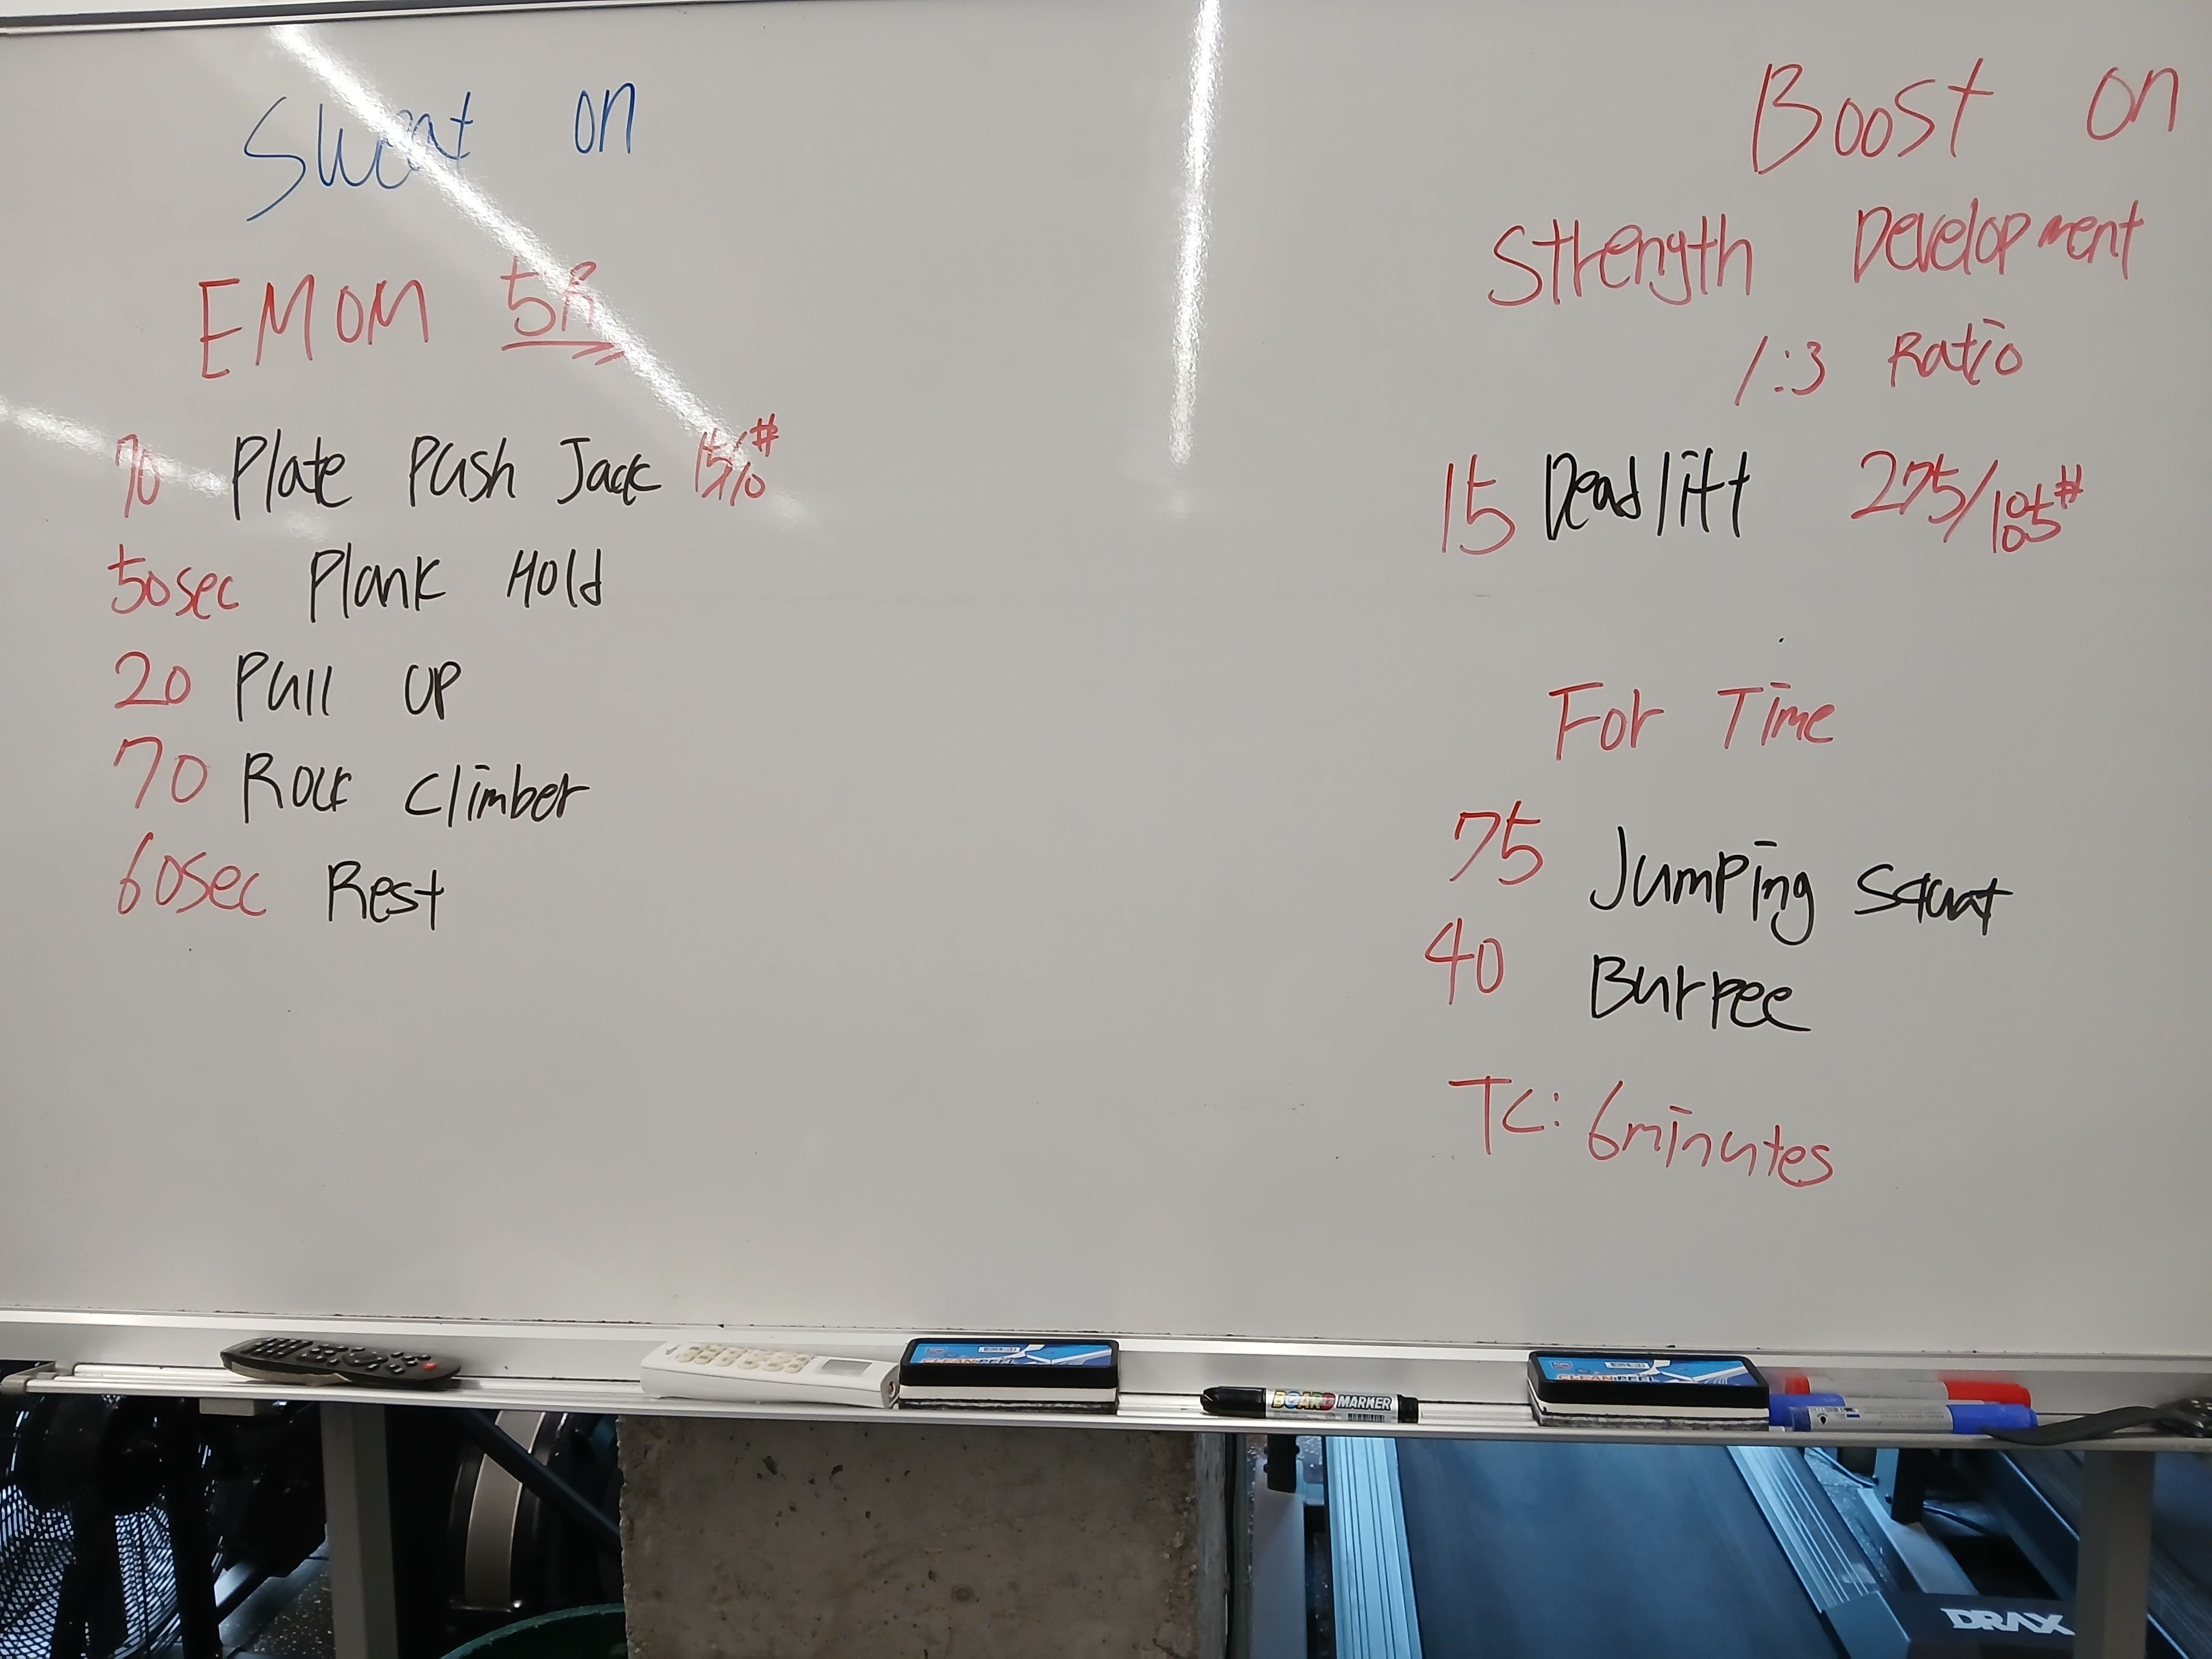 Sweat on
EMOM 5R
70 Plate Push Jack 15/10#
50sec Plank Hold
20 Pull up
70 Rock Climber
60sec Rest
Boost on
Strength Development
1:3 Ratio
15 Deadlift 275/105#
For Time
75 Jumping Squat
40 Burpee
TC: 6minutes
CLEANPEEL
BOARD MARKER
CLEANPEEL
DRAX